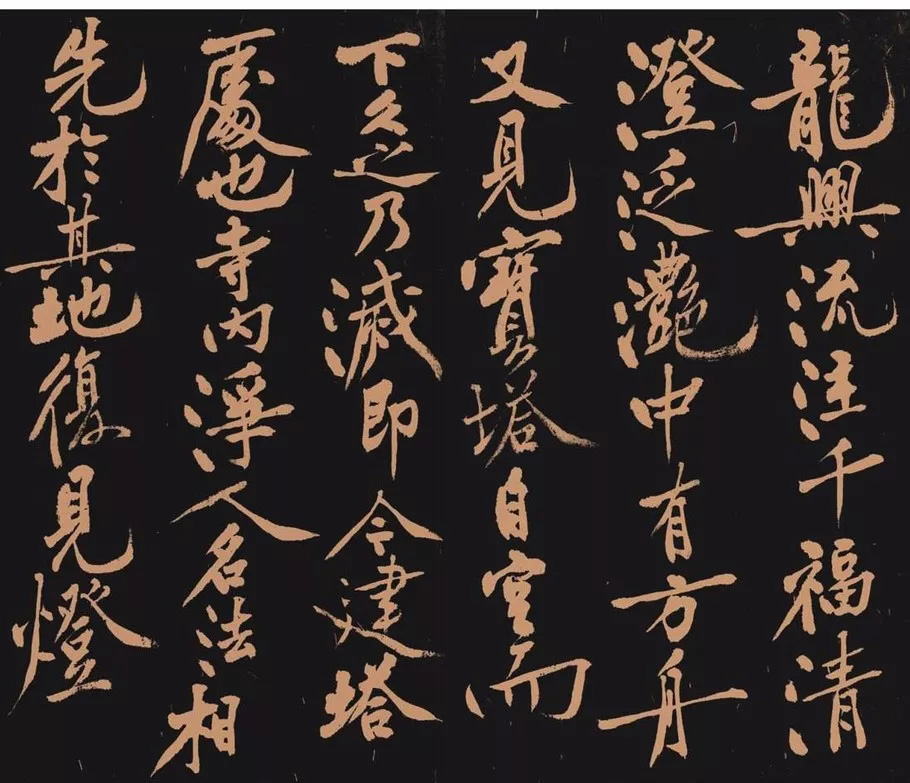 龍興流注千福清
澄泛灧中有方舟
又見寶塔自空而
下久之乃滅即今建塔
處也寺内淨人名法相
先於其地復見燈